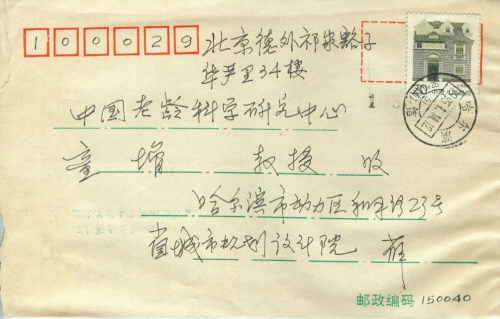 100029 北京德外祁家豁子
华严里34楼
中国老龄科学研究中心
童 教授 收
哈尔滨市动力区和平路23号
省城市规划设计院 薛
邮政编码 150040